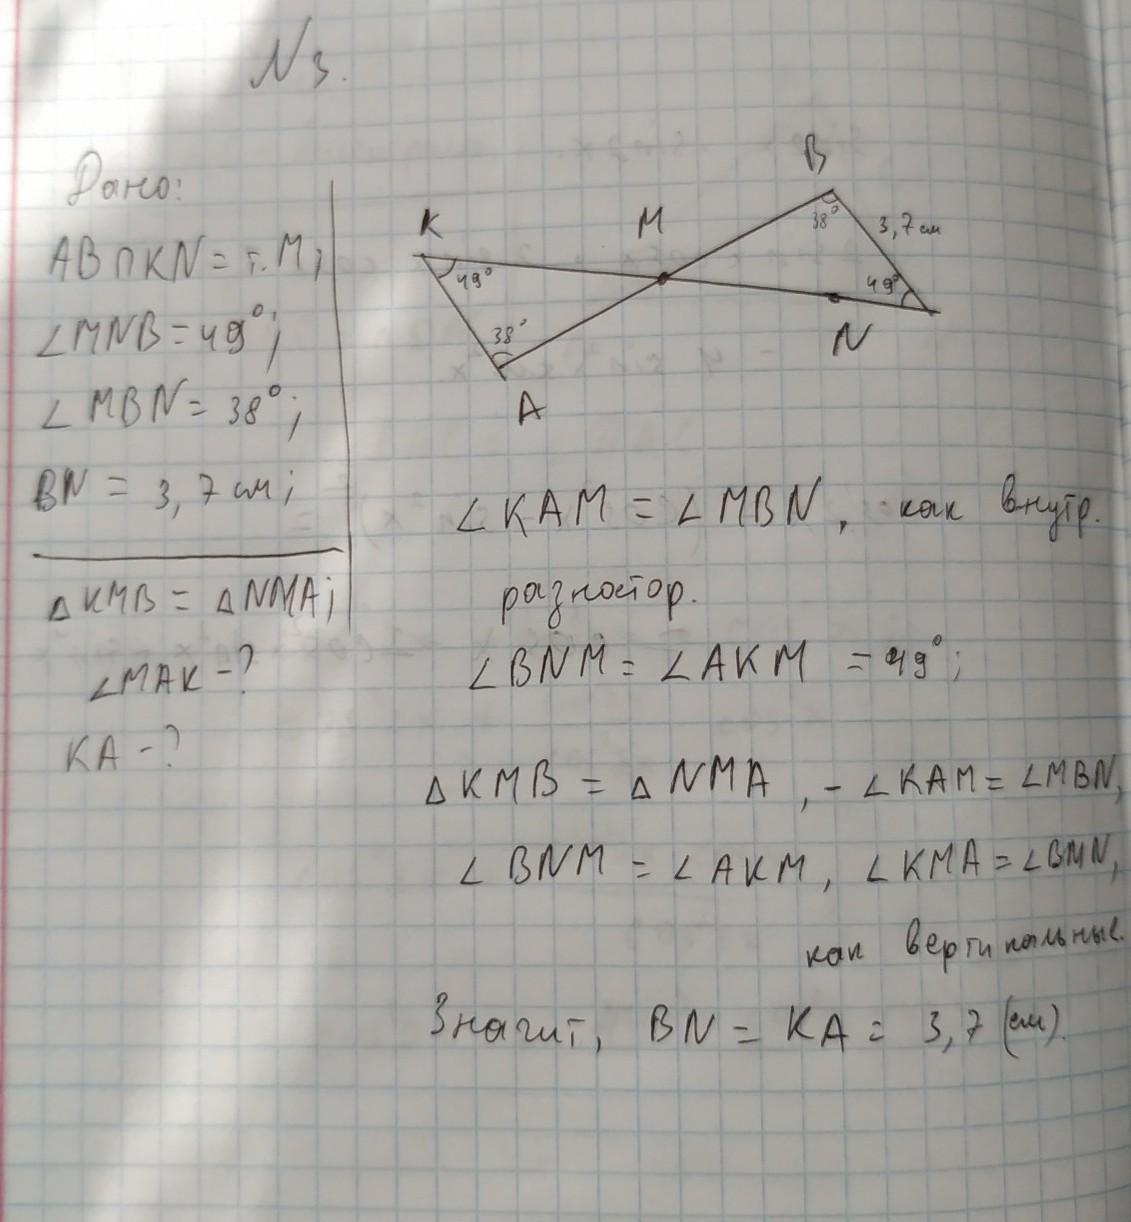 N 3.
Дано:
AB∩KN = т. M;
∠MNB = 49°;
∠MBN = 38°;
BN = 3,7 см;
△KMB = △NMA;
∠MAK - ?
KA - ?
B
K
M
38°
3,7 см
49°
49°
38°
N
A
∠KAM = ∠MBN, как внутр.
разностор.
∠BNM = ∠AKM = 49°;
△KMB = △NMA, - ∠KAM = ∠MBN,
∠BNM = ∠AKM, ∠KMA = ∠BMN,
как вертикальные.
Значит, BN = KA = 3,7 (см).